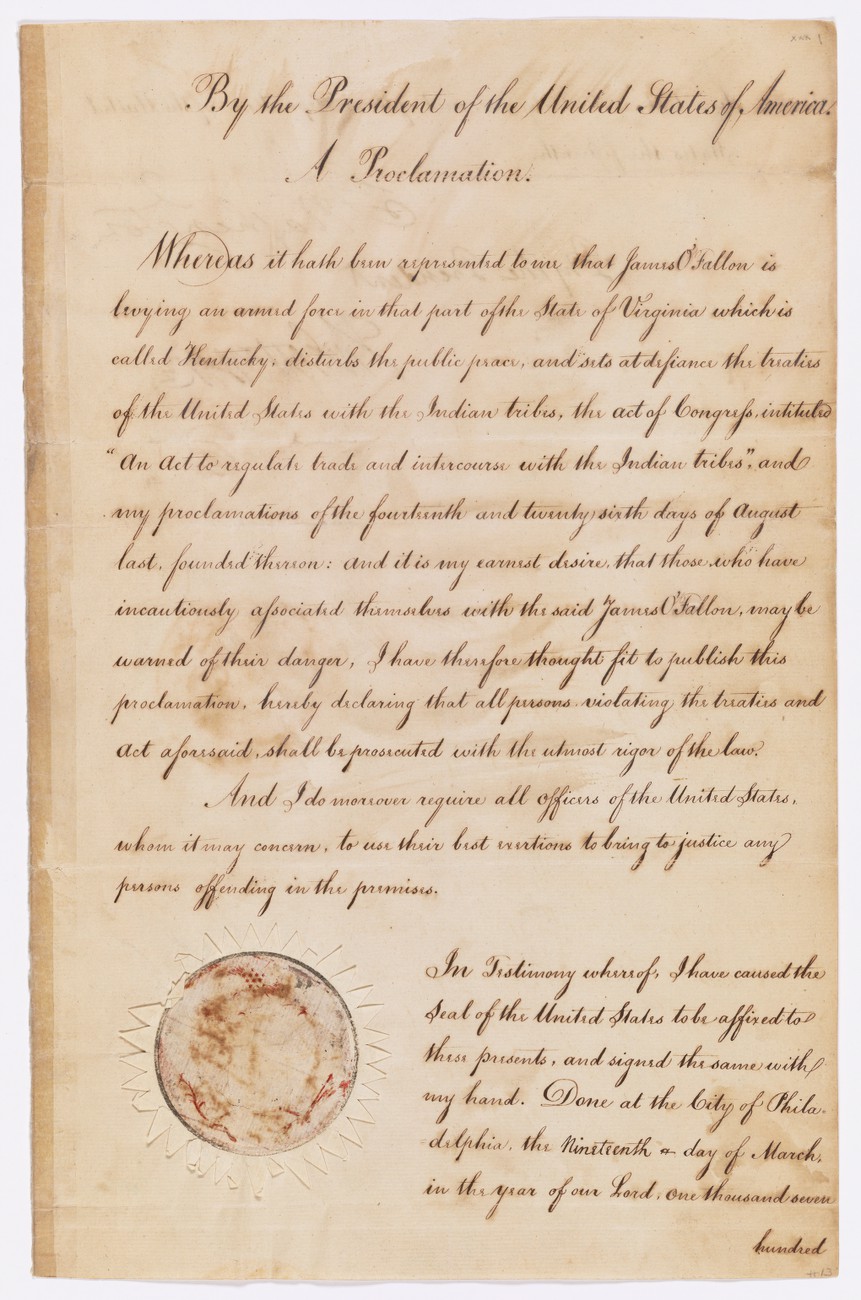 By the President of the United States of America.
A Proclamation.
Whereas it hath been represented to me that James O'Fallon is
levying an armed force in that part of the State of Virginia which is
called Kentucky, disturbs the public peace, and sets at defiance the treaties
of the United States with the Indian tribes, the act of Congress, intituled
"An Act to regulate trade and intercourse with the Indian tribes", and
my proclamations of the fourteenth and twenty sixth days of August
last, founded thereon: And it is my earnest desire, that those who have
incautiously associated themselves with the said James O'Fallon, may be
warned of their danger, I have therefore thought fit to publish this
proclamation, hereby declaring that all persons violating the treaties and
act aforesaid, shall be prosecuted with the utmost rigor of the law.
And I do moreover require all officers of the United States,
whom it may concern, to use their best exertions to bring to justice any
persons offending in the premises.
In Testimony whereof, I have caused the
Seal of the United States to be affixed to
these presents, and signed the same with
my hand. Done at the City of Phila-
delphia, the Nineteenth day of March,
in the year of our Lord, one thousand seven
hundred